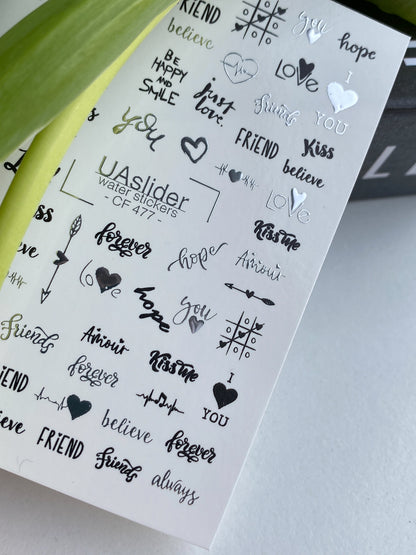 FRIEND
you
believe
hope
BE
HAPPY
AND
SMILE
LOVE
I
YOU
just
love.
friends
you
FRIEND
Kiss
believe
UAslider
water stickers
- CF 477 -
Love
Kiss me
forever
hope
Amour
love
hope
you
friends
Amour
Kiss me
forever
I
YOU
believe
forever
FRIEND
friends
always